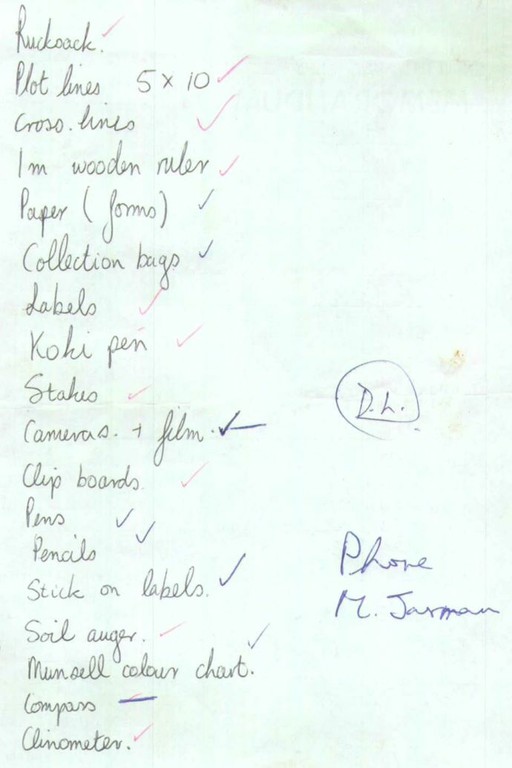 Rucksack.
Plot lines 5 x 10
Cross. lines
1m wooden ruler
Paper (forms)
Collection bags
Labels
Koki pen
Stakes
Cameras. + film.
D.L.
Clip boards.
Pens
Pencils
Phone
Stick on labels.
M. Jarman
Soil auger.
Munsell colour chart.
Compass
Clinometer.